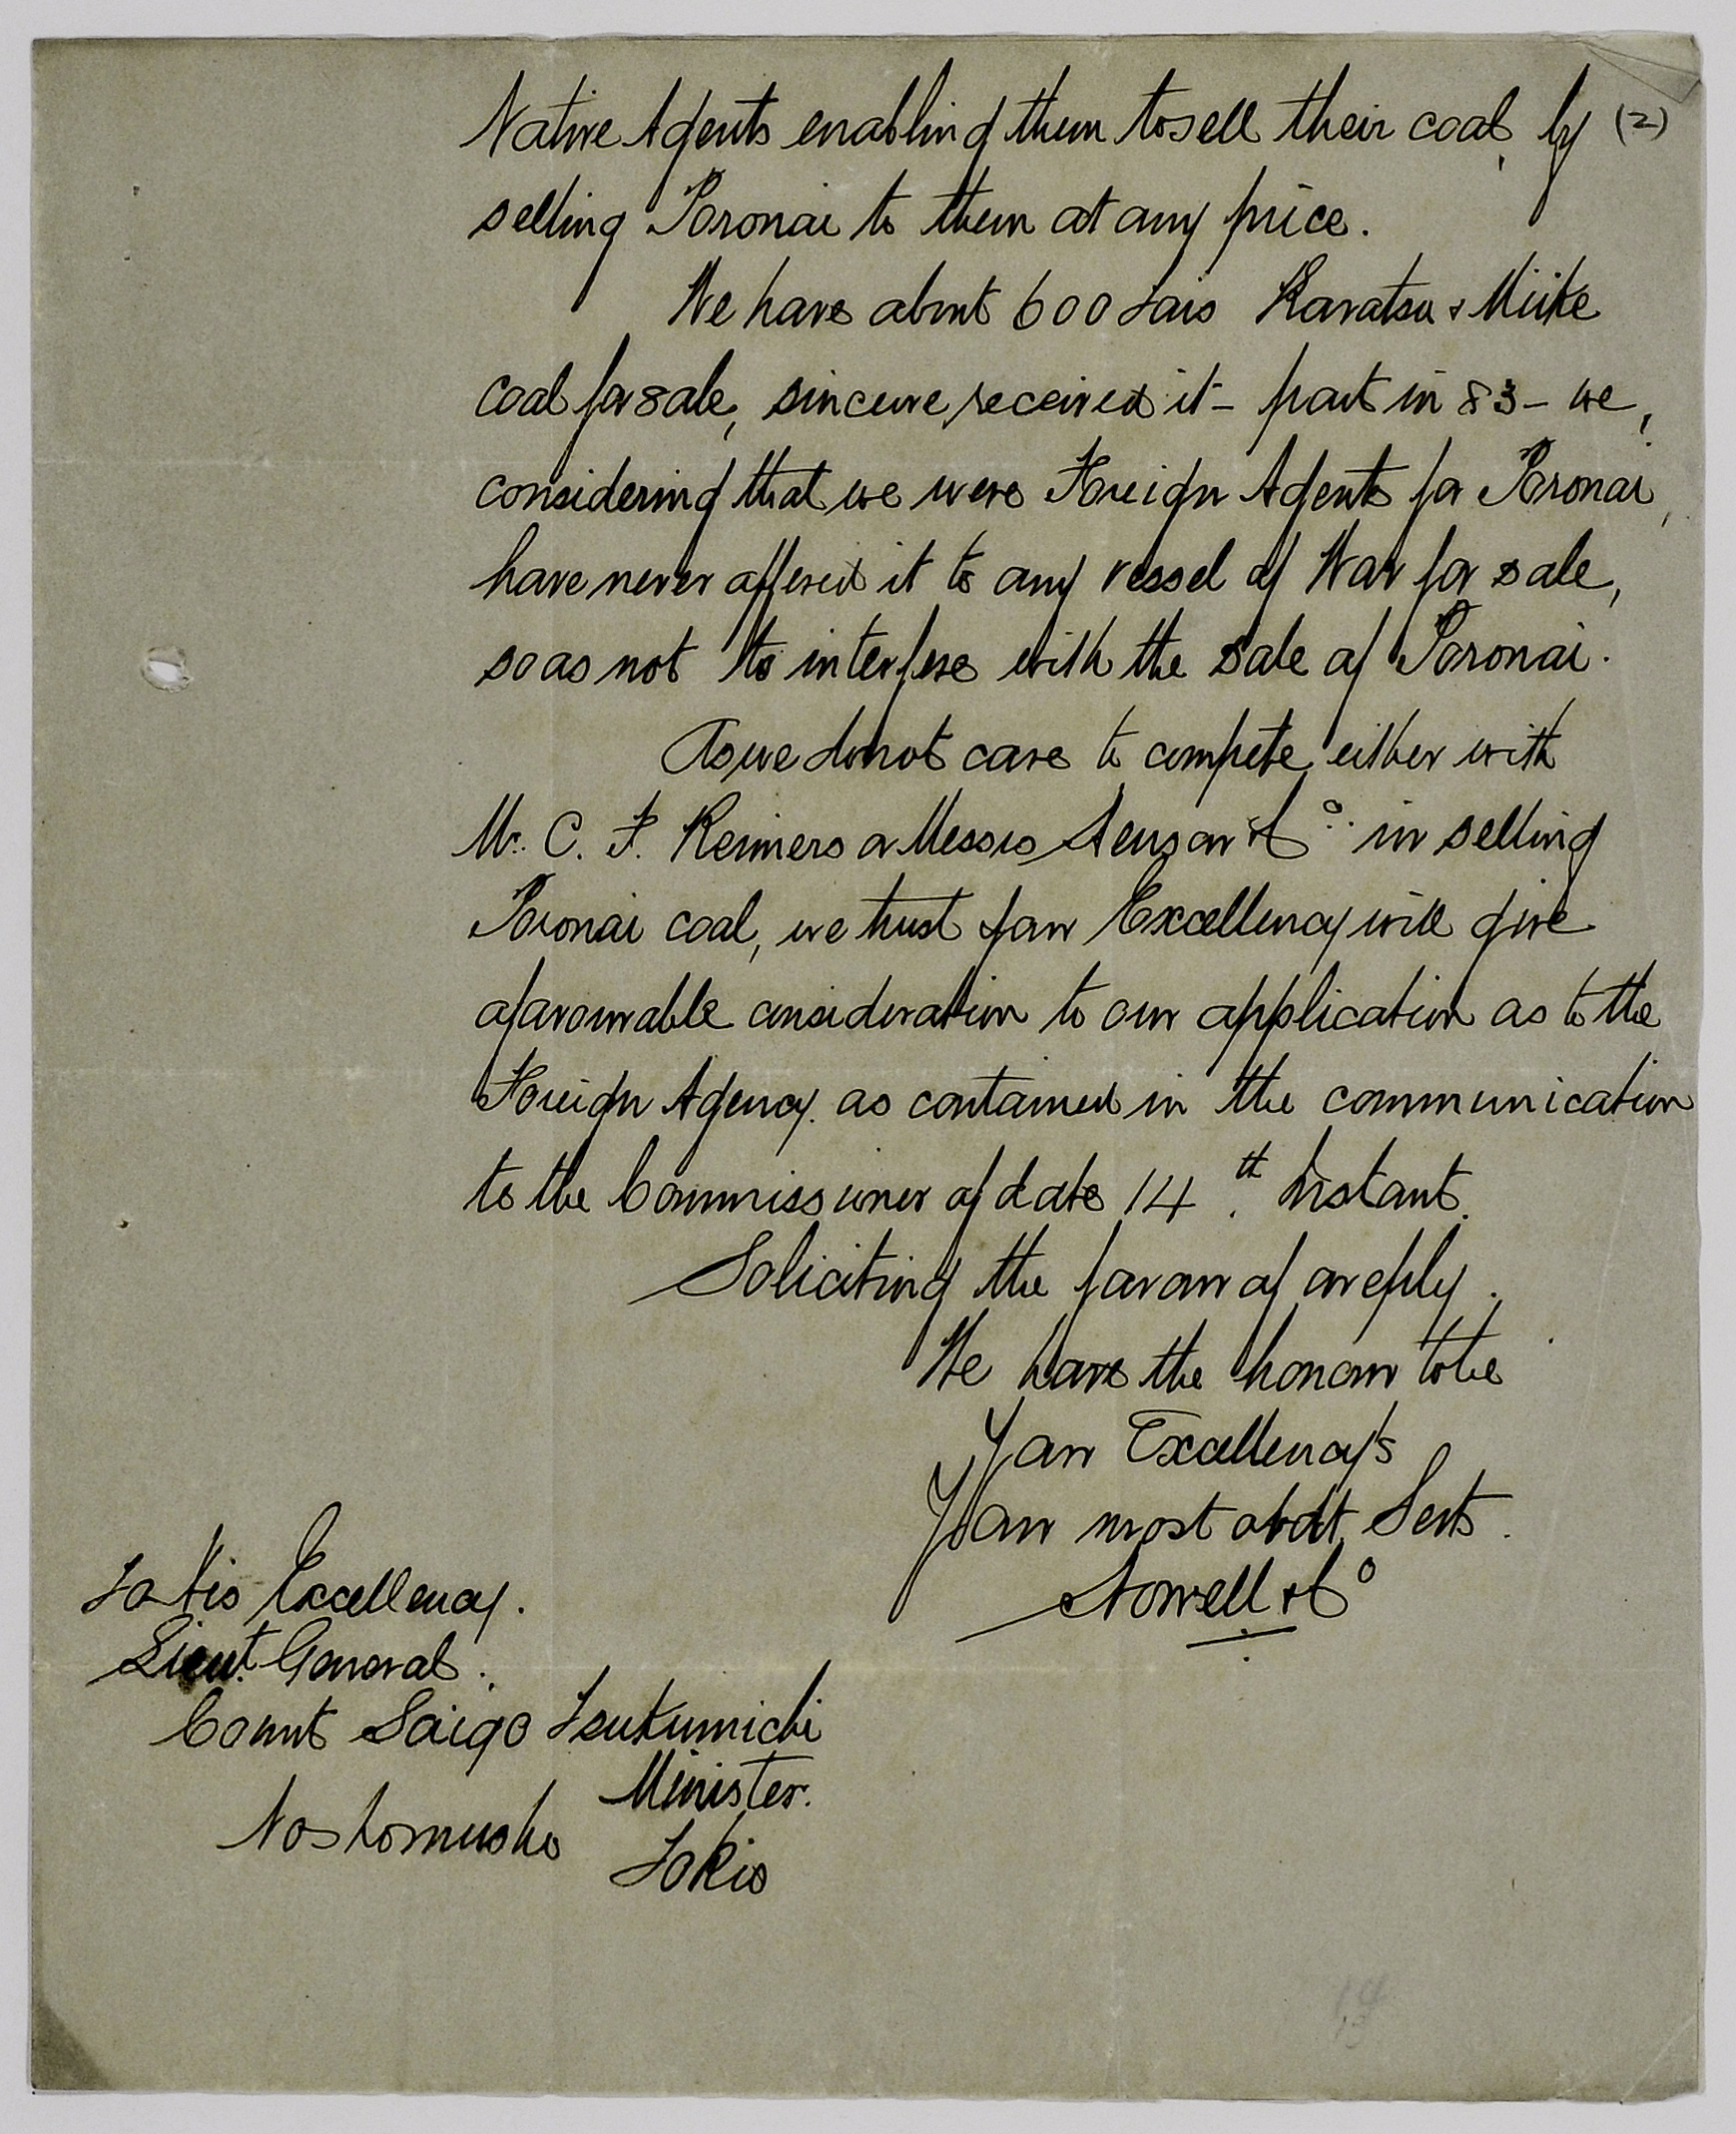 (2)
Native Agents enabling them to sell their coal, by
selling Poronai to them at any price.
We have about 600 Tons Karatsu & Miike
coal for sale, since we received it - part in 83 - we,
considering that we were Foreign Agents for Poronai,
have never offered it to any vessel of War for sale,
so as not to interfere with the sale of Poronai.
As we do not care to compete either with
Mr. C. F. Reimers or Messrs & Co. in selling
Poronai coal, we trust Your Excellency will give
a favourable consideration to our application as to the
Foreign Agency. as contained in the communication
to the Commissioner of date 14th. Instant.
Soliciting the favour of a reply.
We have the honour to be
Your Excellency's
Your most obdt. Servts.
Howell & Co
To His Excellency.
Lieut. General.
Count Saigo Tsukumichi
Minister.
Noshomusho
Tokio